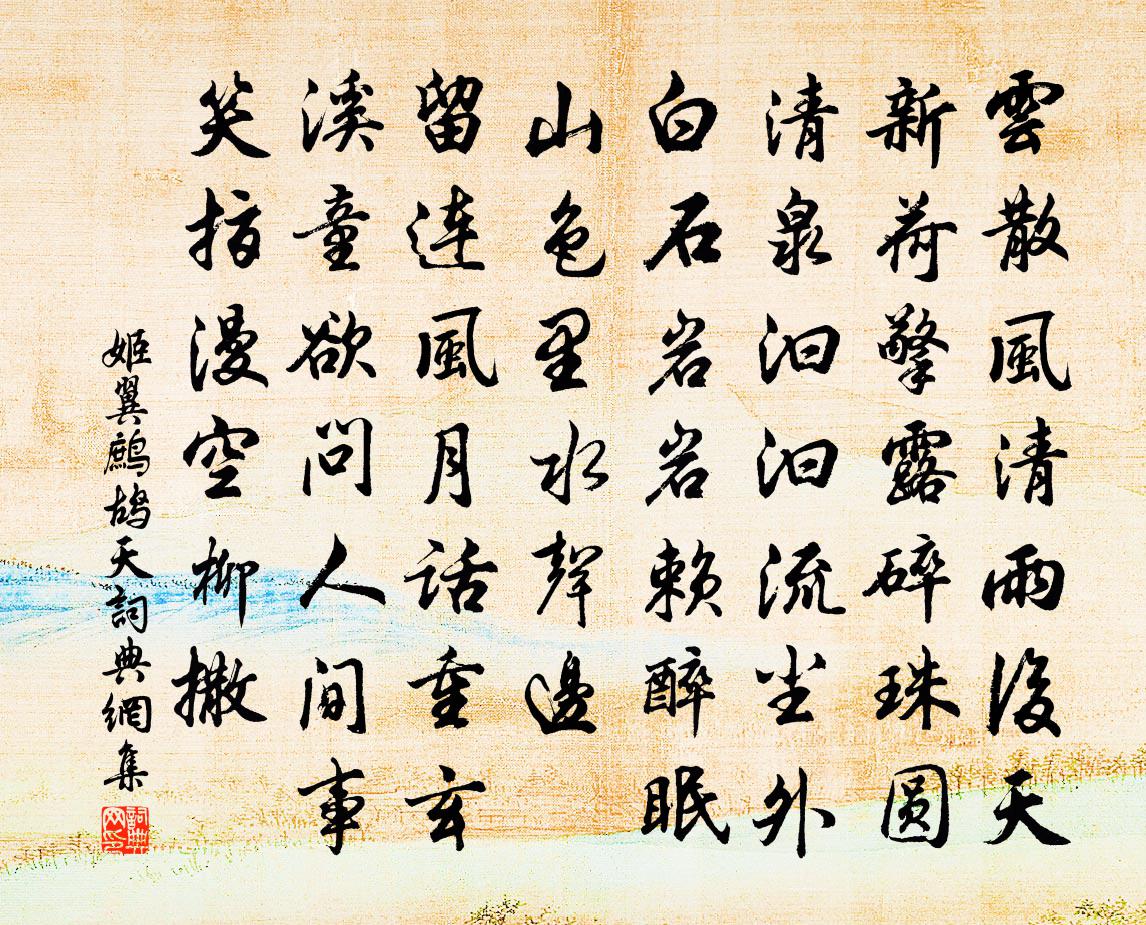 雲散風清雨後天
新荷擎露碎珠圓
清泉汩汩流尘外
白石岩岩賴醉眠
山色里水聲邊
留連風月話重玄
溪童欲問人間事
笑指漫空柳撒
姬翼鷓鴣天詞典網集
詞典網印